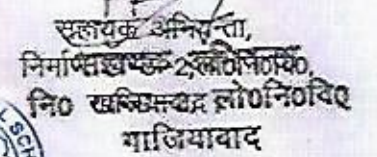 सहायक अभियन्ता,
निर्माण खण्ड-2, लो०नि०वि०,
नि० लो०नि०वि०
गाजियाबाद
SCH